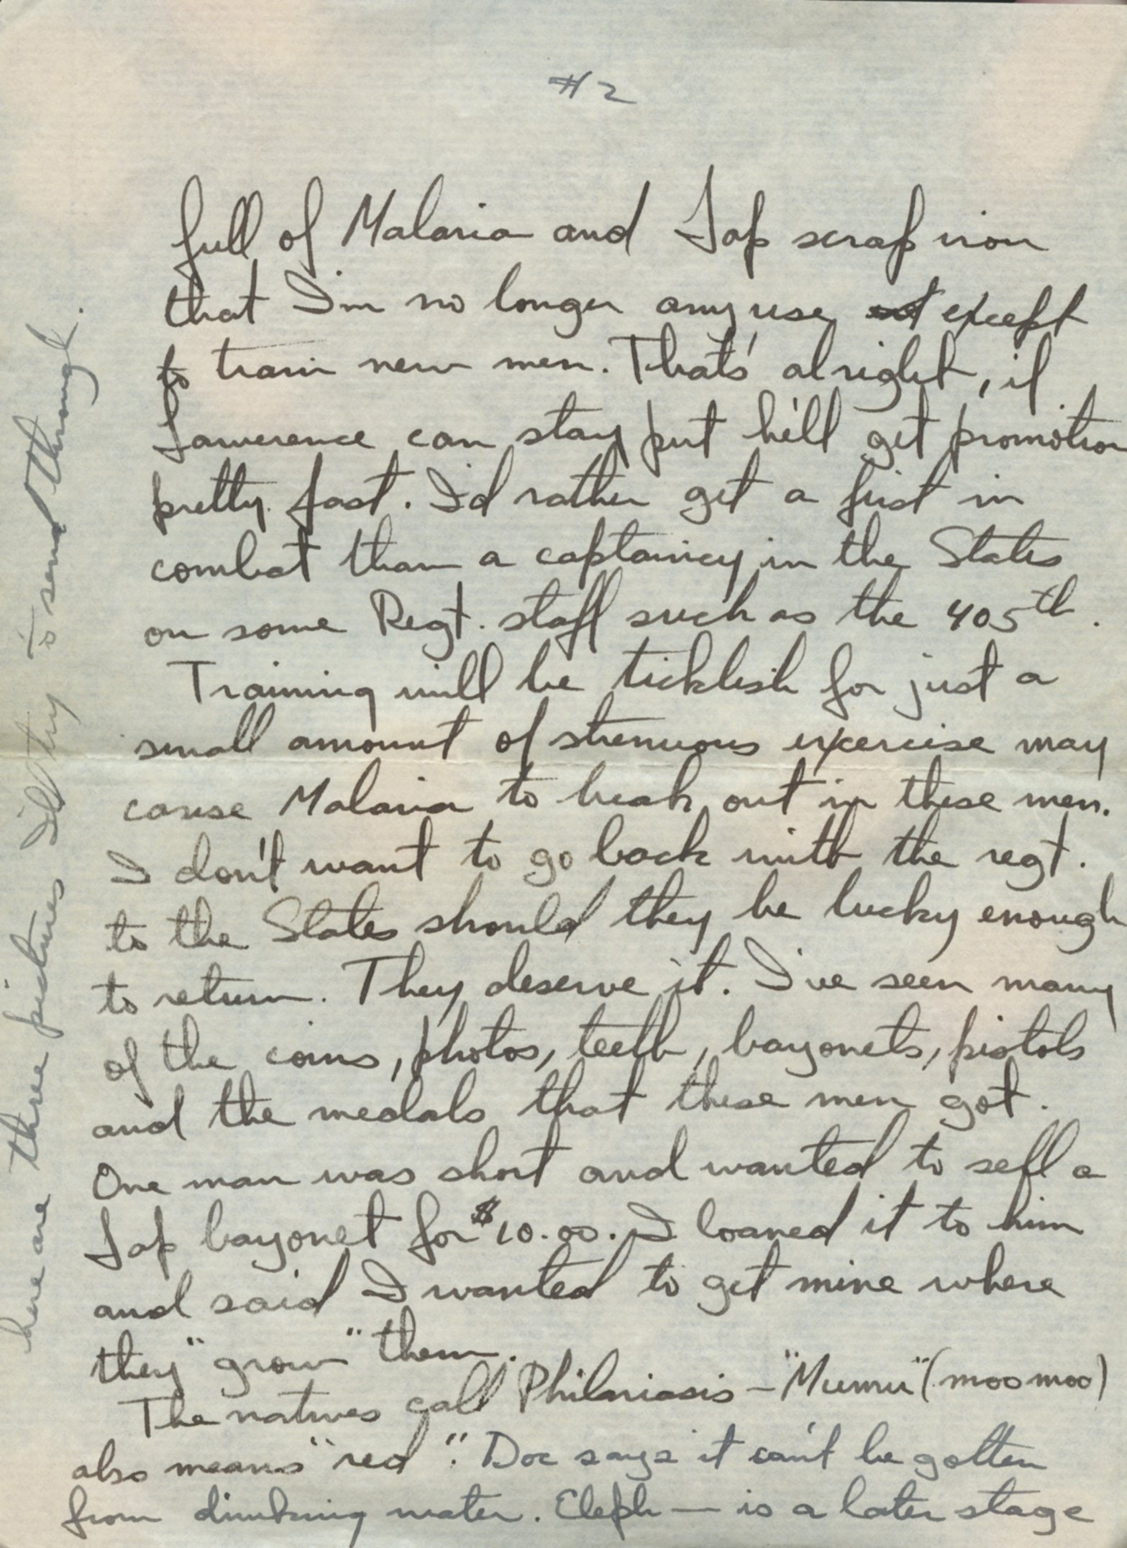 #2
full of Malaria and Jap scrap iron
that I'm no longer any use except
to train new men. That's alright, if
Lawerence can stay put he'll get promotion
pretty fast. I'd rather get a first in
combat than a captaincy in the States
on some Regt. staff such as the 405th.
Training will be ticklish for just a
small amount of strenuous exercise may
cause Malaria to break out in these men.
I don't want to go back with the regt.
to the States should they be lucky enough
to return. They deserve it. I've seen many
of the coins, photos, teeth, bayonets, pistols
and the medals that these men got.
One man was short and wanted to sell a
Jap bayonet for $10.00. I loaned it to him
and said I wanted to get mine where
they "grow" them.
The natives call Philariasis - "Mumu" (moo moo)
also means "red". Doc says it can't be gotten
from drinking water. Eleph— is a later stage
here are three pictures I'll try to send through.